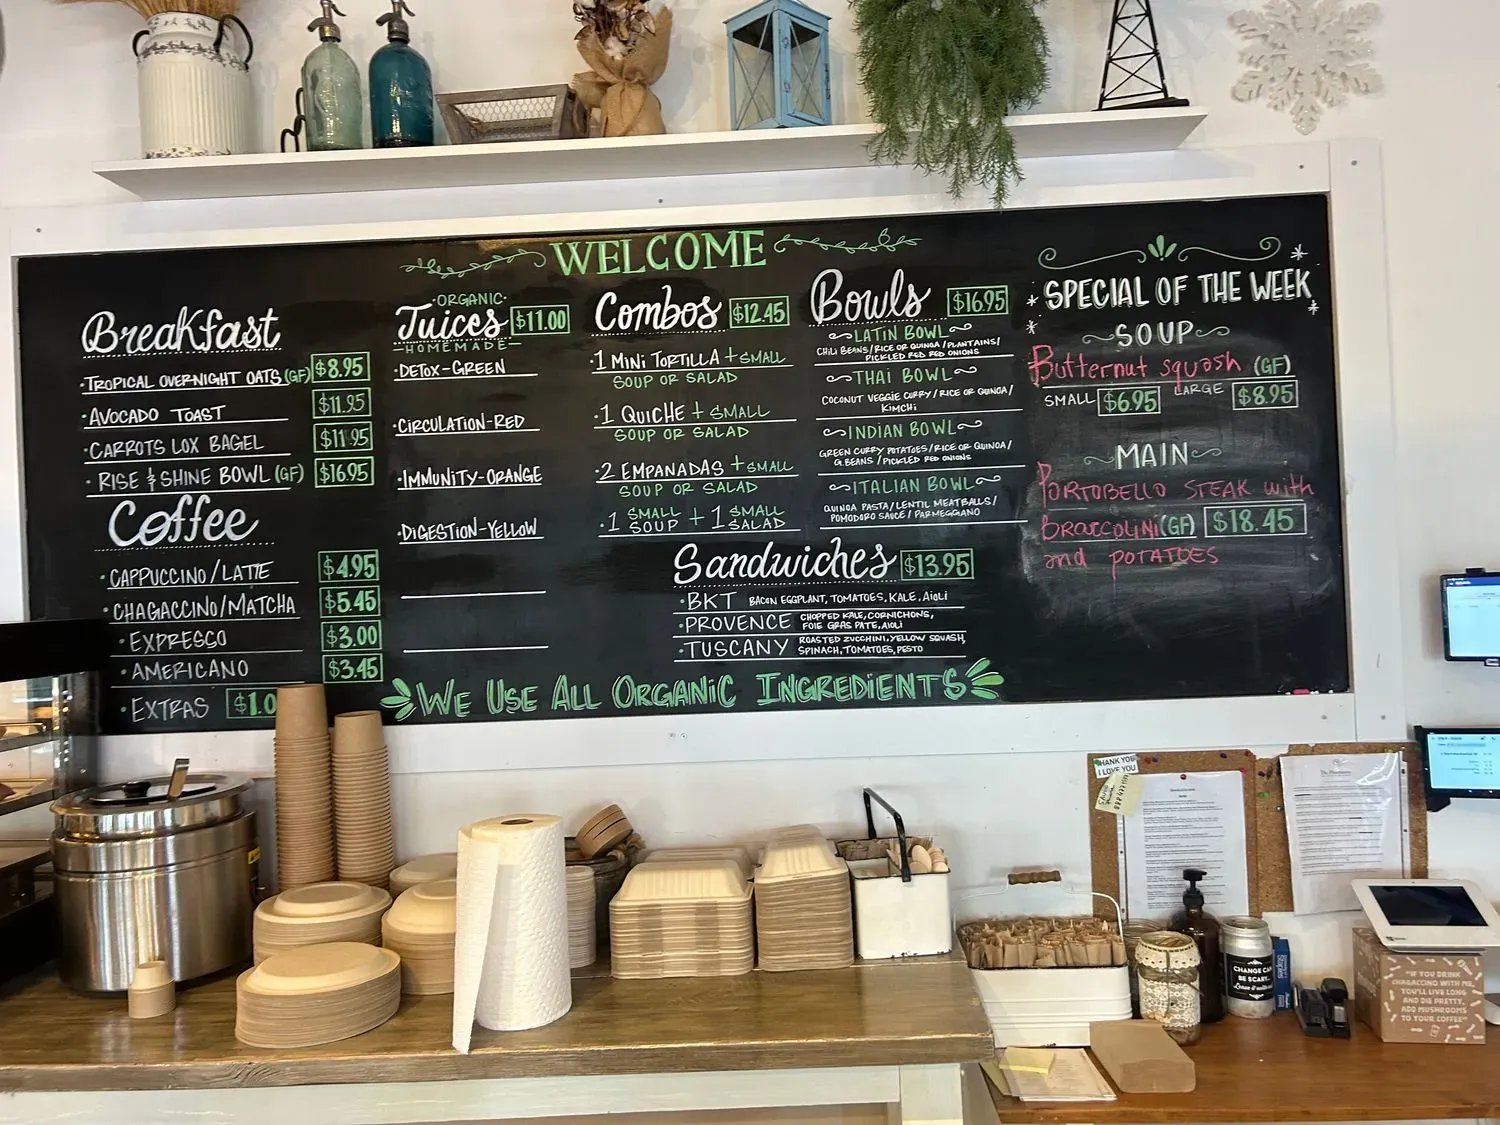 WELCOME
Breakfast
·TROPICAL OVERNIGHT OATS (GF) $8.95
·AVOCADO TOAST $11.95
·CARROTS LOX BAGEL $11.95
·RISE & SHINE BOWL (GF) $16.95
Coffee
·CAPPUCCINO/LATTE $4.95
·CHAGACCINO/MATCHA $5.45
·EXPRESCO $3.00
·AMERICANO $3.45
·EXTRAS $1.0
·ORGANIC·
Juices $11.00
-HOMEMADE-
·DETOX-GREEN
·CIRCULATION-RED
·IMMUNITY-ORANGE
·DIGESTION-YELLOW
Combos $12.45
·1 MINI TORTILLA + SMALL
SOUP OR SALAD
·1 QUICHE + SMALL
SOUP OR SALAD
·2 EMPANADAS + SMALL
SOUP OR SALAD
·1 SMALL SOUP + 1 SMALL SALAD
Bowls $16.95
LATIN BOWL
CHILI BEANS/RICE OR QUINOA/PLANTAINS/
PICKLED RED RED ONIONS
THAI BOWL
COCONUT VEGGIE CURRY/RICE OR QUINOA/
KIMCHI
INDIAN BOWL
GREEN CURRY POTATOES/RICE OR QUINOA/
G.BEANS/PICKLED RED ONIONS
ITALIAN BOWL
QUINOA PASTA/LENTIL MEATBALLS/
POMODORO SAUCE/PARMEGGIANO
Sandwiches $13.95
·BKT BACON EGGPLANT, TOMATOES, KALE, AIOLI
·PROVENCE CHOPPED KALE, CORNICHONS,
FOIE GRAS PATE, AIOLI
·TUSCANY ROASTED ZUCCHINI, YELLOW SQUASH,
SPINACH, TOMATOES, PESTO
WE USE ALL ORGANIC INGREDIENTS
SPECIAL OF THE WEEK
SOUP
Butternut squash (GF)
SMALL $6.95 LARGE $8.95
MAIN
PORTOBELLO STEAK with
BROCCOLINI (GF) $18.45
and POTATOES
THANK YOU
I LOVE YOU
CHANGE CAN
BE SCARY...
Leave it
"IF YOU DRINK
CHAGACCINO WITH ME,
YOU'LL LIVE LONG
AND DIE PRETTY,
ADD MUSHROOMS
TO YOUR COFFEE"